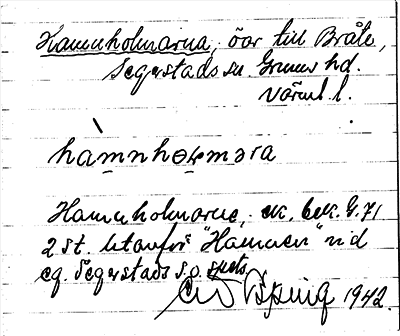 Hamnholmarna, öar till Bråte,
Segerstads sn. Grums hd.
Värml. l.
hàmnhoɷməra
Hamnholmarne, ek. bek. G. 71
2 st. utanför "Hamnen" vid
eg. Segerstads s.o. spets
1942.